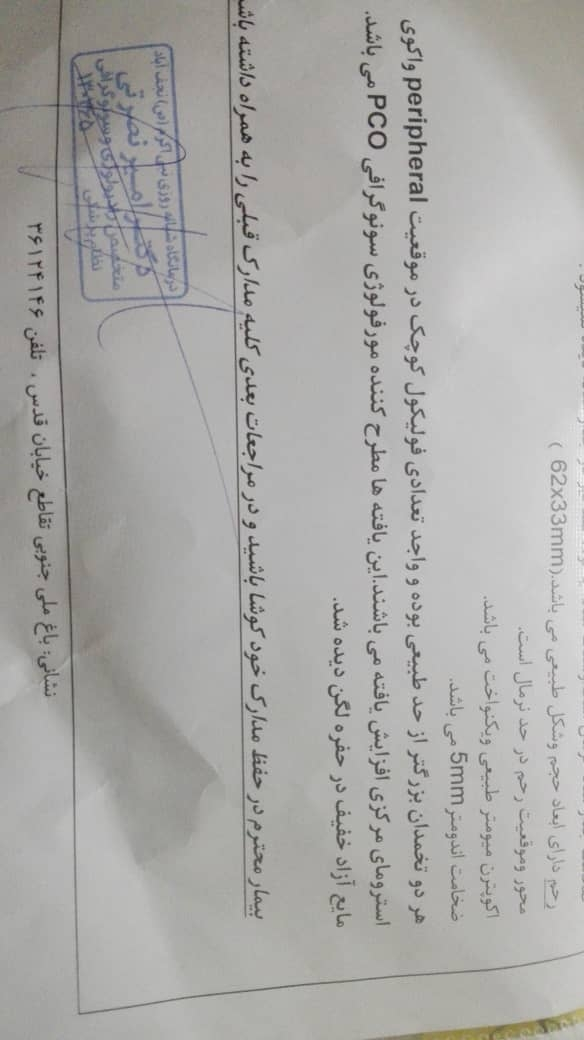 رحم دارای ابعاد حجم وشکل طبیعی می باشد.(62x33mm )
محور وموقعیت رحم در حد نرمال است.
اکوپترن میومتر طبیعی ویکنواخت می باشد.
ضخامت اندومتر 5mm می باشد.
هر دو تخمدان بزرگتر از حد طبیعی بوده و واجد تعدادی فولیکول کوچک در موقعیت peripheral واکوی
استرومای مرکزی افزایش یافته می باشند.این یافته ها مطرح کننده مورفولوژی سونوگرافی PCO می باشد.
مایع آزاد خفیف در حفره لگن دیده شد.
بیمار محترم در حفظ مدارک خود کوشا باشید و در مراجعات بعدی کلیه مدارک قبلی را به همراه داشته باش
درمانگاه شبانه روزی نبی اکرم (ص) نجف آباد
دکتر امیر نصرتی
متخصص رادیولوژی وسونوگرافی
نظام پزشکی
نشانی: باغ ملی جنوبی تقاطع خیابان قدس ، تلفن ۳۶۱۲۴۱۴۶